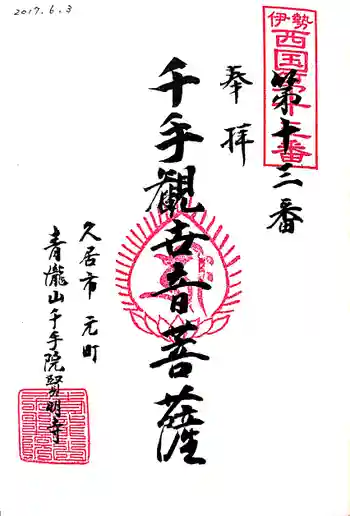 2017.6.3
伊勢
西国第十三番
第十三番
奉拝
千手觀世音菩薩
久居市 元町
青瀧山千手院賢明寺